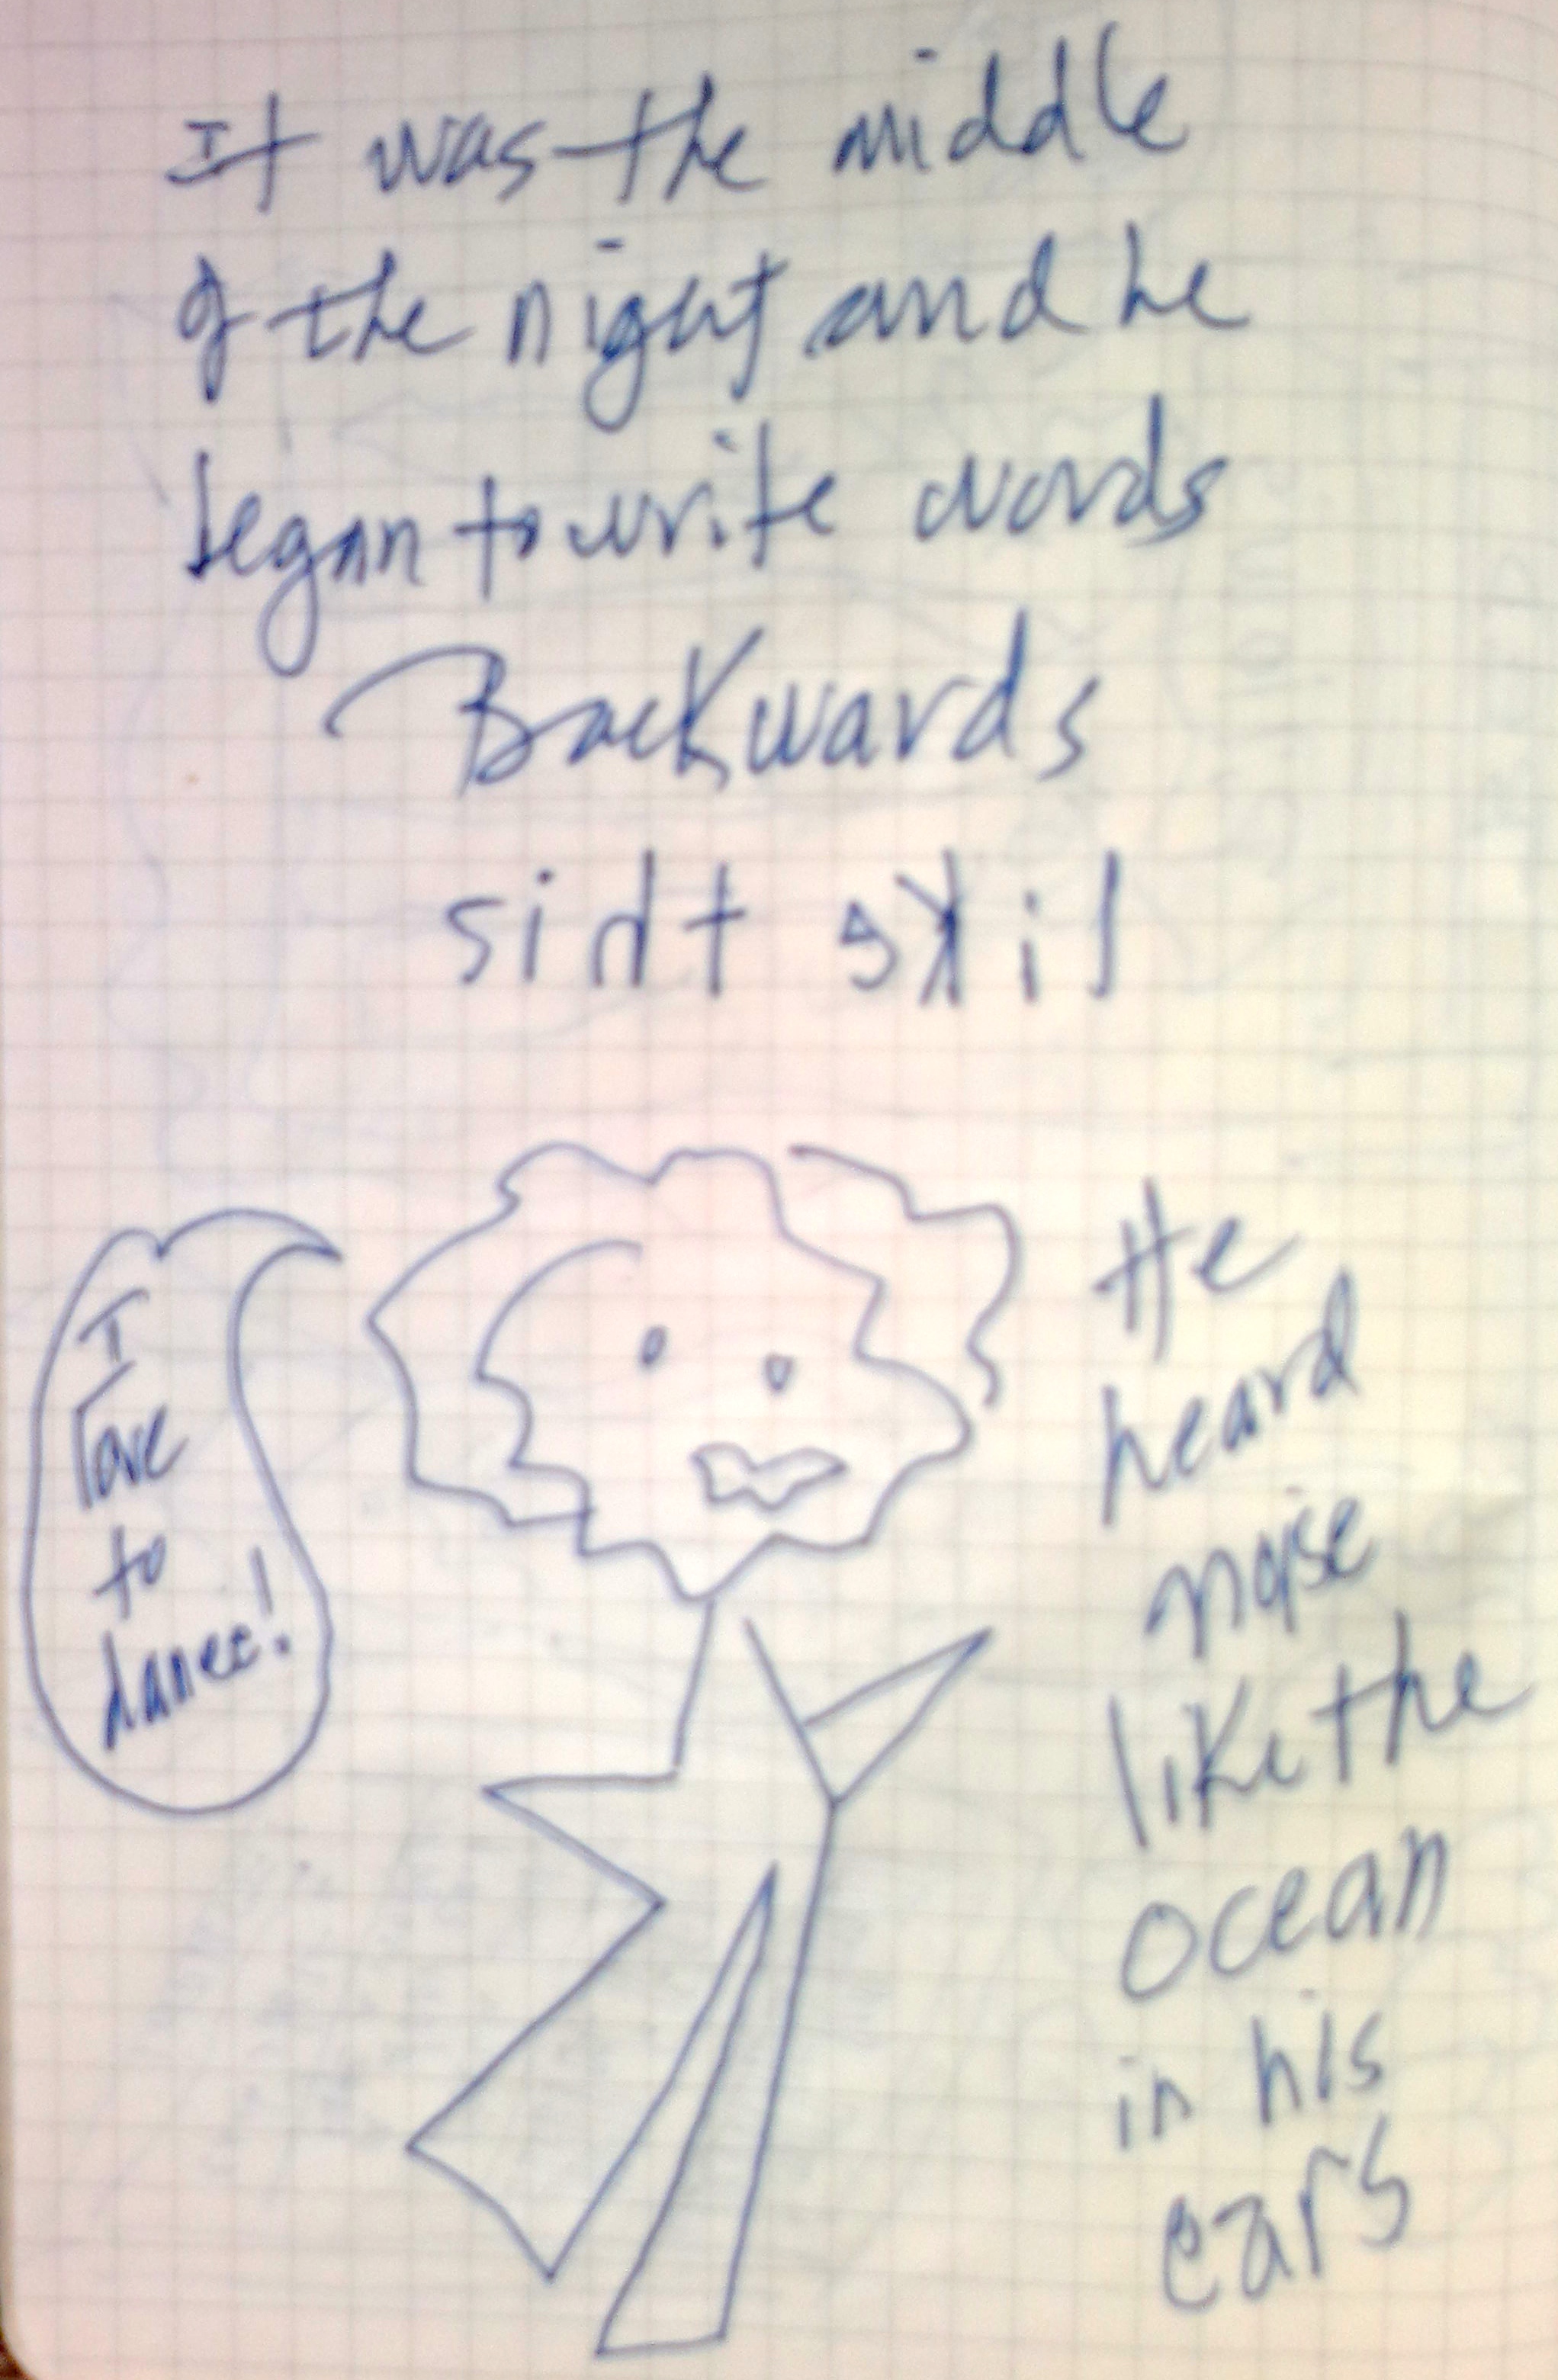 It was the middle
of the night and he
began to write words
Backwards
siht ekil
I
love
to
dance!
He
heard
noise
like the
ocean
in his
ears